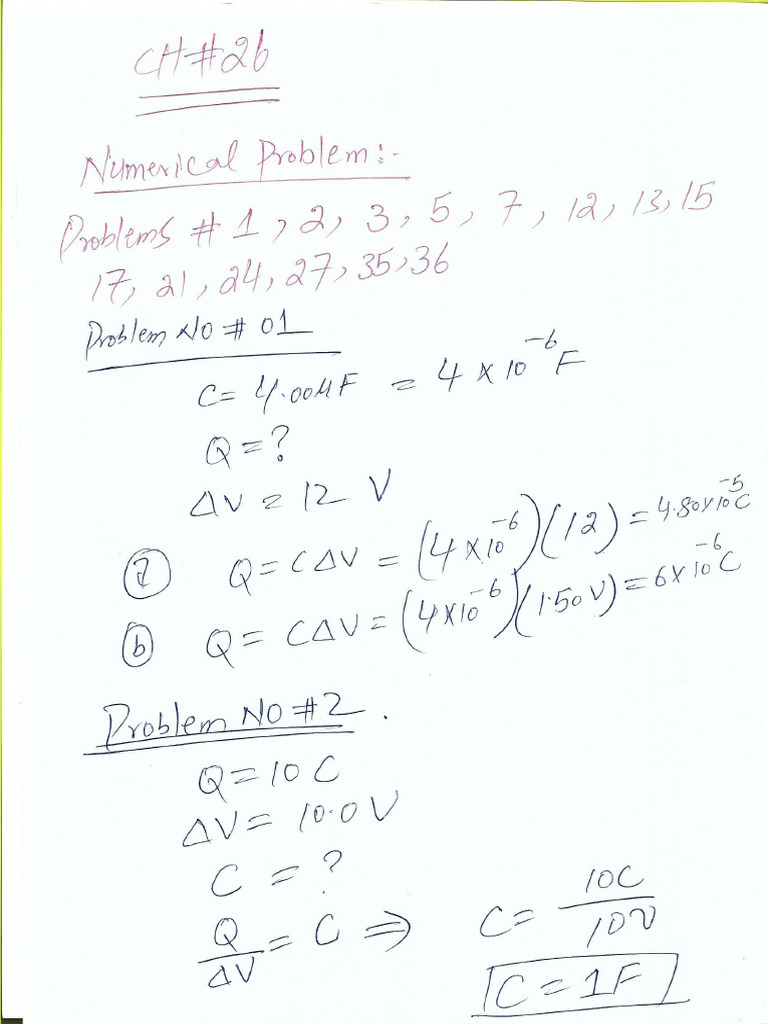 CH#26
Numerical Problem:-
Problems # 1, 2, 3, 5, 7, 12, 13, 15
17, 21, 24, 27, 35, 36
Problem NO # 01
C= 4.00μF = 4 × 10⁻⁶ F
Q = ?
ΔV = 12 V
ⓐ Q = CΔV = (4×10⁻⁶)(12) = 4.80×10⁻⁵ C
ⓑ Q = CΔV = (4×10⁻⁶)(1.50V) = 6×10⁻⁶ C
Problem NO #2.
Q = 10 C
ΔV = 10.0 V
C = ?
Q/ΔV = C ⇒ C = 10C/10V
C = 1F